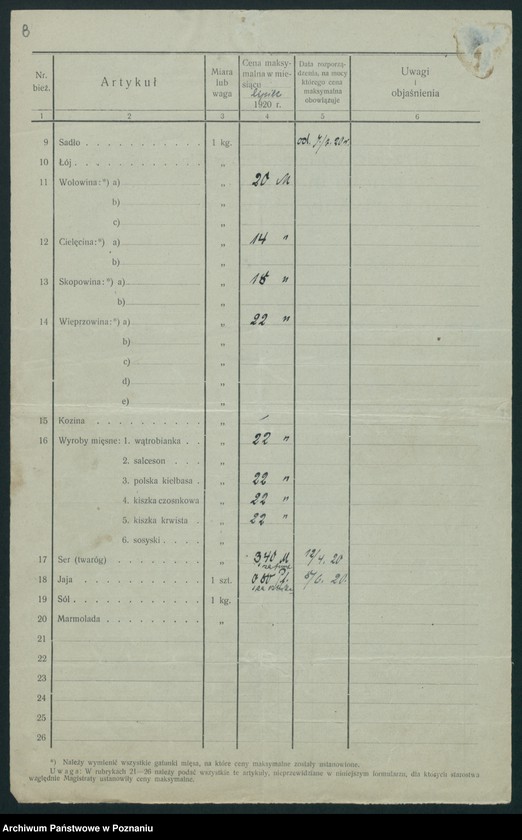 8
Nr. bież. Artykuł Miara lub waga Cena maksymalna w miesiącu lipiec 1920 r. Data rozporządzenia, na mocy którego cena maksymalna obowiązuje Uwagi i objaśnienia
1 2 3 4 5 6
9 Sadło . . . 1 kg. od 7/6. 20
10 Łój . . . „
11 Wołowina:*) a) „ 20 M
b) „
c) „
12 Cielęcina:*) a) „ 14 "
b) „
13 Skopowina:*) a) „ 18 "
b) „
14 Wieprzowina:*) a) „ 22 "
b) „
c) „
d) „
e) „
15 Kozina . . . „ /
16 Wyroby mięsne: 1. wątrobianka . . „ 22 "
2. salceson . . . „
3. polska kiełbasa . „ 22 "
4. kiszka czosnkowa „ 22 "
5. kiszka krwista . „ 22 "
6. sosyski . . . . „
17 Ser (twaróg) . . . „ 3,40 M 12/4. 20
za funt
18 Jaja . . . 1 szt. 5/6. 20
19 Sól . . . 1 kg.
20 Marmolada . . . „
21
22
23
24
25
26
*) Należy wymienić wszystkie gatunki mięsa, na które ceny maksymalne zostały ustanowione.
Uwaga: W rubrykach 21—26 należy podać wszystkie te artykuły, nieprzewidziane w niniejszym formularzu, dla których starostwa
względnie Magistraty ustanowiły ceny maksymalne.
Archiwum Państwowe w Poznaniu